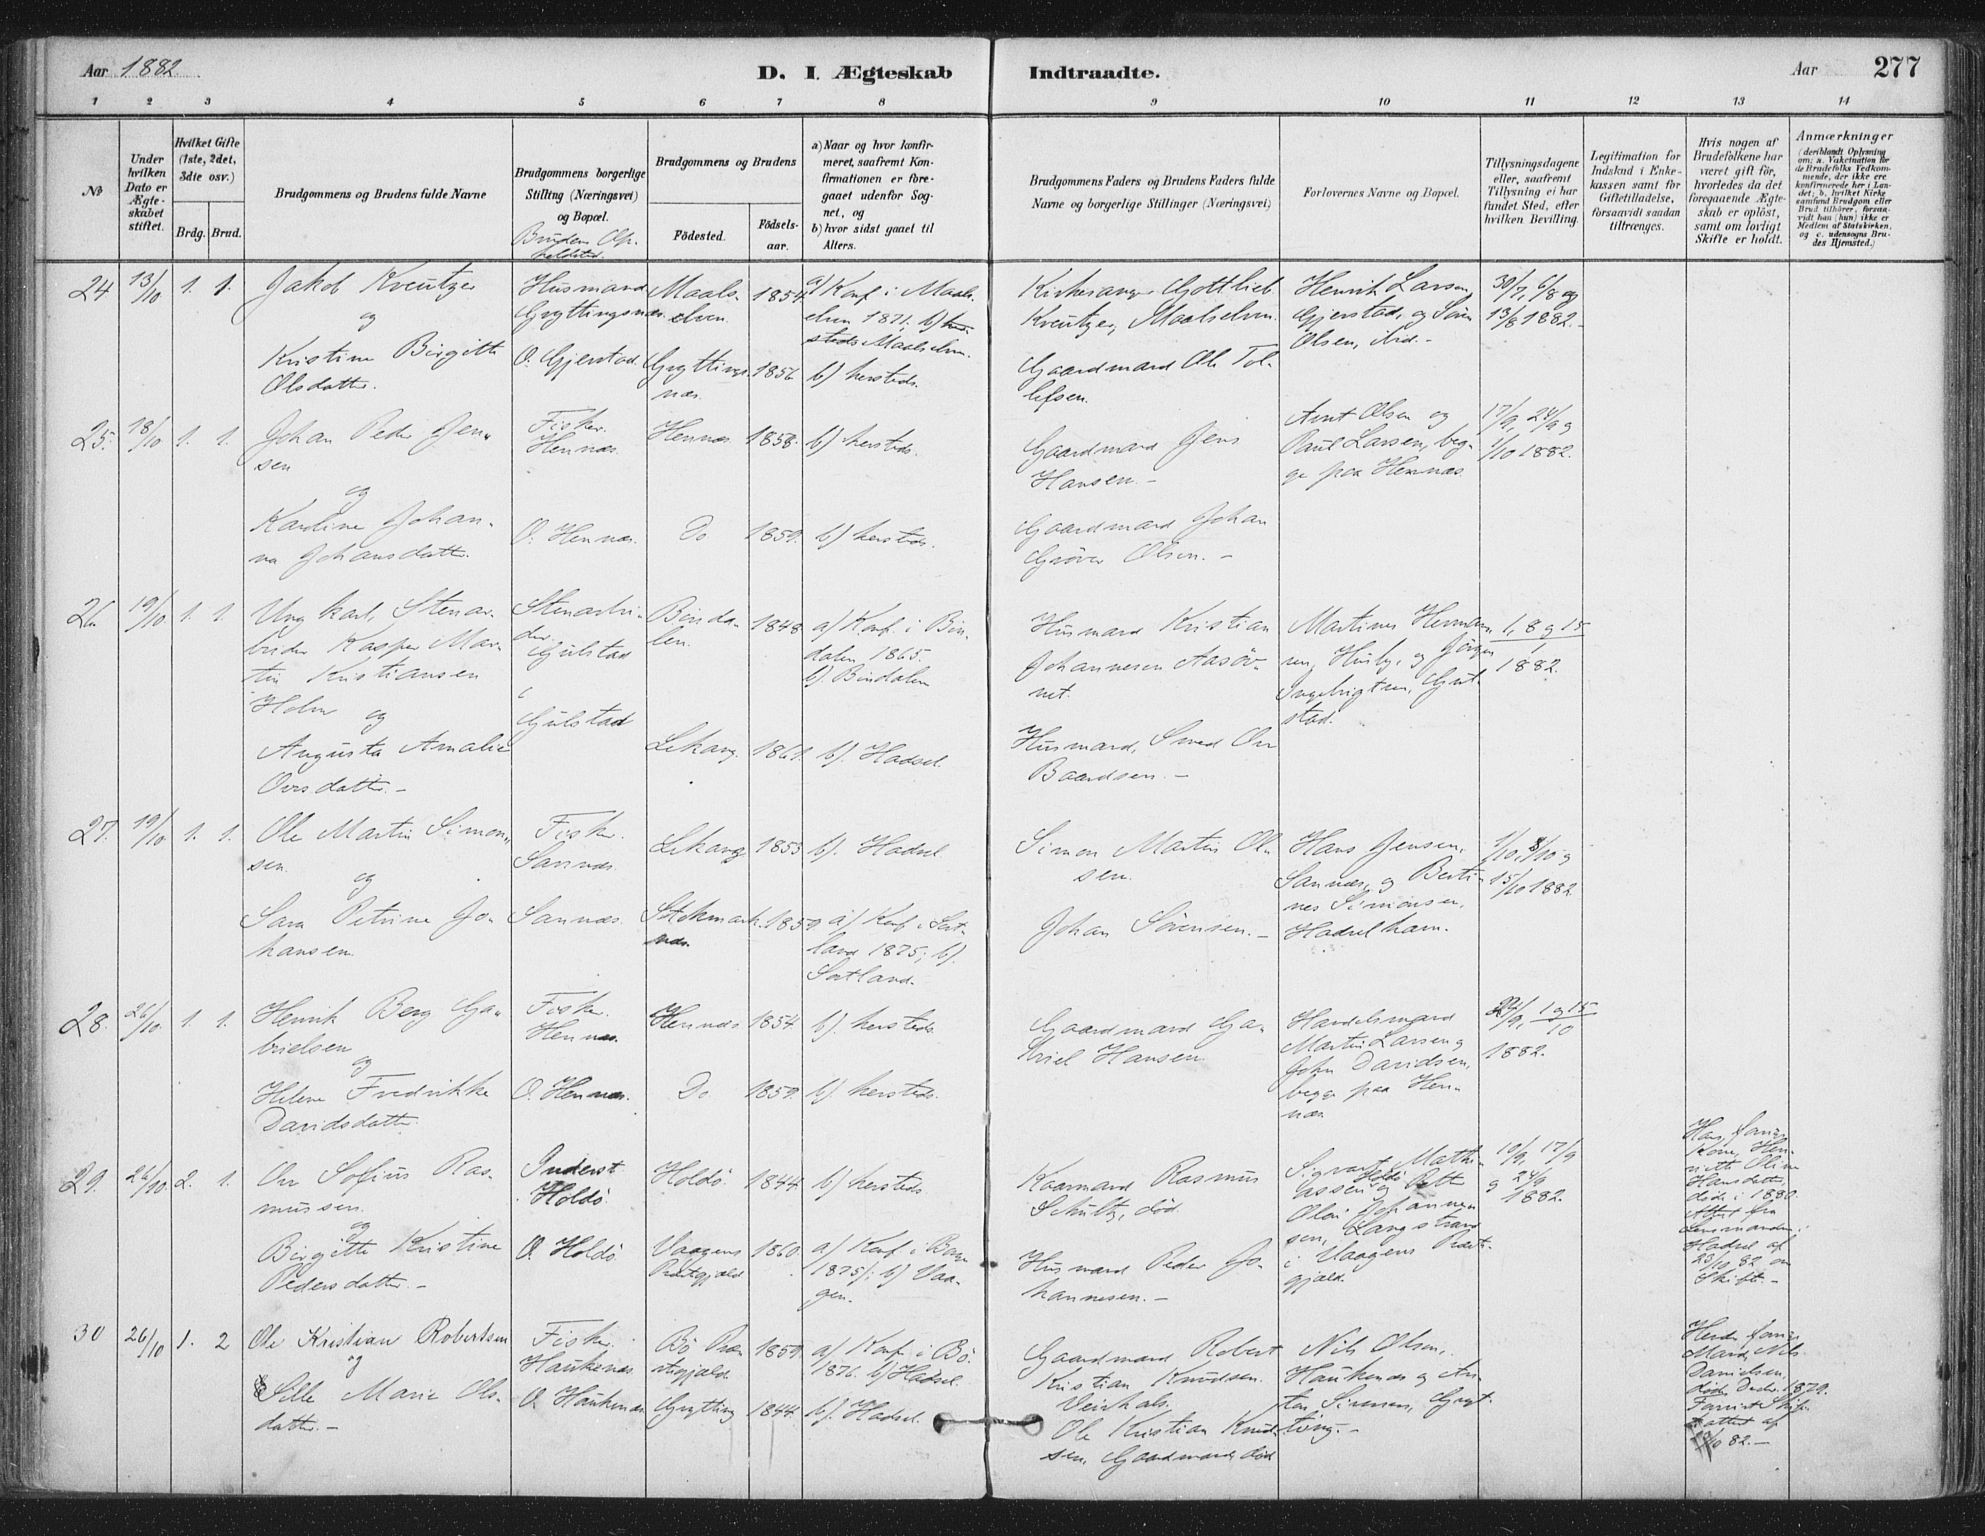 Aar 1882.
D. I. Ægteskab Indtraadte.
Aar 277
1 2 3 4 5 6 7 8 9 10 11 12 13 14
No
Under hvilken Dato er Ægteskabet stiftet.
Hvilket Gifte (1ste, 2det, 3die osv.)
Brdg. Brud.
Brudgommens og Brudens fulde Navne
Brudgommens borgerlige Stilling (Næringsvei) og Bopæl.
Brudens Opholdsted.
Brudgommens og Brudens
Födested.
Födselsaar.
a) Naar og hvor konfirmeret, saafremt Konfirmationen er foregaaet udenfor Sognet, og
b) hvor sidst gaaet til Alters.
Brudgommens Faders og Brudens Faders fulde Navne og borgerlige Stillinger (Næringsvei)
Forlovernes Navne og Bopæl.
Tillysningsdagene eller, saafremt Tillysning ei har fundet Sted, efter hvilken Bevilling.
Legitimation for Indskud i Enkekassen samt for Giftetilladelse, forsaavidt saadan tiltrænges.
Hvis nogen af Brudefolkene har været gift för, hvorledes da det foregaaende Ægteskab er oplöst, samt om lovligt Skifte er holdt.
Anmærkninger
(deriblandt Oplysning om: a. Vakcination for de Brudefolks Vedkommende, der ikke ere konfirmerede her i Landet; b. hvilket Kirkesamfund Brudgom eller Brud tilhörer, forsaavidt han (hun) ikke er Medlem af Statskirken, og c. udensogns Brudes Hjemsted.)
24 13/10 1. 1. Jakob Kreutzer
og
Kristine Birgitte
Olsdatter.
Husmand
Gryttingsnæs.
O. Gjerstad.
Maalselven 1854
Gryttingsnæs. 1856
a) Konf. i Maalselven 1871; b) Maalselven.
b) hersteds.
Kirkesanger Gottlieb
Kreutzer, Maalselven.
Gaardmand Ole Tollefsen.
Henrik Larsen,
Gjerstad, og Sören
Olsen, ibid.-
30/7, 6/8 og
13/8 1882.
25. 18/10 1. 1. Johan Peder Jensen
og
Karoline Johanna Johansdatter.
Fisker.
Hennæs.
O. Hennæs.
Hennæs. 1858.
Do 1859.
b) hersteds.
b) hersteds.
Gaardmand Jens
Hansen.-
Gaardmand Johan
Gröver Olsen.-
Arnt Olsen og
Paul Larsen, begge paa Hennæs.
17/9, 24/9 og
1/10 1882.
26 19/10 1. 1. Ungkarl, Stenarbeider Kasper Martin Kristiansen
Holm og
Augusta Amalie
Ovesdatter.-
Stenarbeider.
Gulstad
Gulstad
Bindalen. 1848
Lekang. 1861.
a) Konf. i Bindalen 1865.
b) Bindalen
b). Hadsel.
Husmand Kristian
Johannesen Aasövnet.
Husmand, Smed Ove
Baardsen.-
Martines Hermansen, Husby, og Jörgen
Ingebrigtsen, Gulstad.
1, 8 og 15
1882.
27. 19/10 1. 1. Ole Martin Simonsen.
og
Sara Petrine Johansen.
Fisker.
Sannæs.
Sannæs.
Lekang 1853
Stokmarknæs. 1859
b). Hadsel
a) Konf. i Sortland 1875; b).
Sortland.
Simon Martin Olsen.
Johan Sörensen.-
Hans Jensen,
Sannæs, og Bertines Simonsen,
Hadselhavn.
1/10, 8/10 og
15/10 1882.
28. 26/10 1. 1. Henrik Berg Gabrielsen
og
Helene Fredrikke
Davidsdatter.
Fisker.
Hennæs.
O. Hennæs.
Hennæs 1854.
Do 1859.
b). hersteds.
b). hersteds.
Gaardmand Gabriel Hansen.
Handelsmand
Martin Larsen og
John Davidsen,
begge paa Hennæs
24/9, 1 og 15/10
1882.
29. 26/10 2. 1. Ove Sofius Rasmussen.
og
Birgitte Kristine
Pedersdatter.-
Inderst
Holdö.
O. Holdö
Holdö. 1844.
Vaagens
Prstgjæld 1860.
b) hersteds.
a) Konf. i
1875; b) Vaagen.
Kaarmand Rasmus
Schultz, död.
Husmand Peder Johannesen.-
Sigvart Mathiassen, Holdö og
Johannessen, Langstrand
i Vaagens Præstegjæld.
10/9, 17/9
og 24/9
1882.
Hans forrige
Kone, Henriette Oline
Hansdatter,
döde i 1880.
Attest fra
Lensmanden i
Hadsel af
23/10 82 om
Skifte.-
30 26/10 1. 2 Ole Kristian Robertsen
og
Sille Marie Olsdatter.-
Fisker.
Haukenæs.
O. Haukenæs.
Bö Præstegjæld. 1859
Grytting 1844.
a) Konf. i Bö.
1876. b) Hadsel.
b). Hadsel.
Gaardmand Robert
Kristian Knudsen.
Ole Kristian Knudsen, Gaardmand, död
Nils Olsen,
Haukenæs og Anton Simonsen, Grytting.-
Hendes forrige
Mand, Nils
Danielsen,
döde Decbr. 1879.
af
/10 82.-